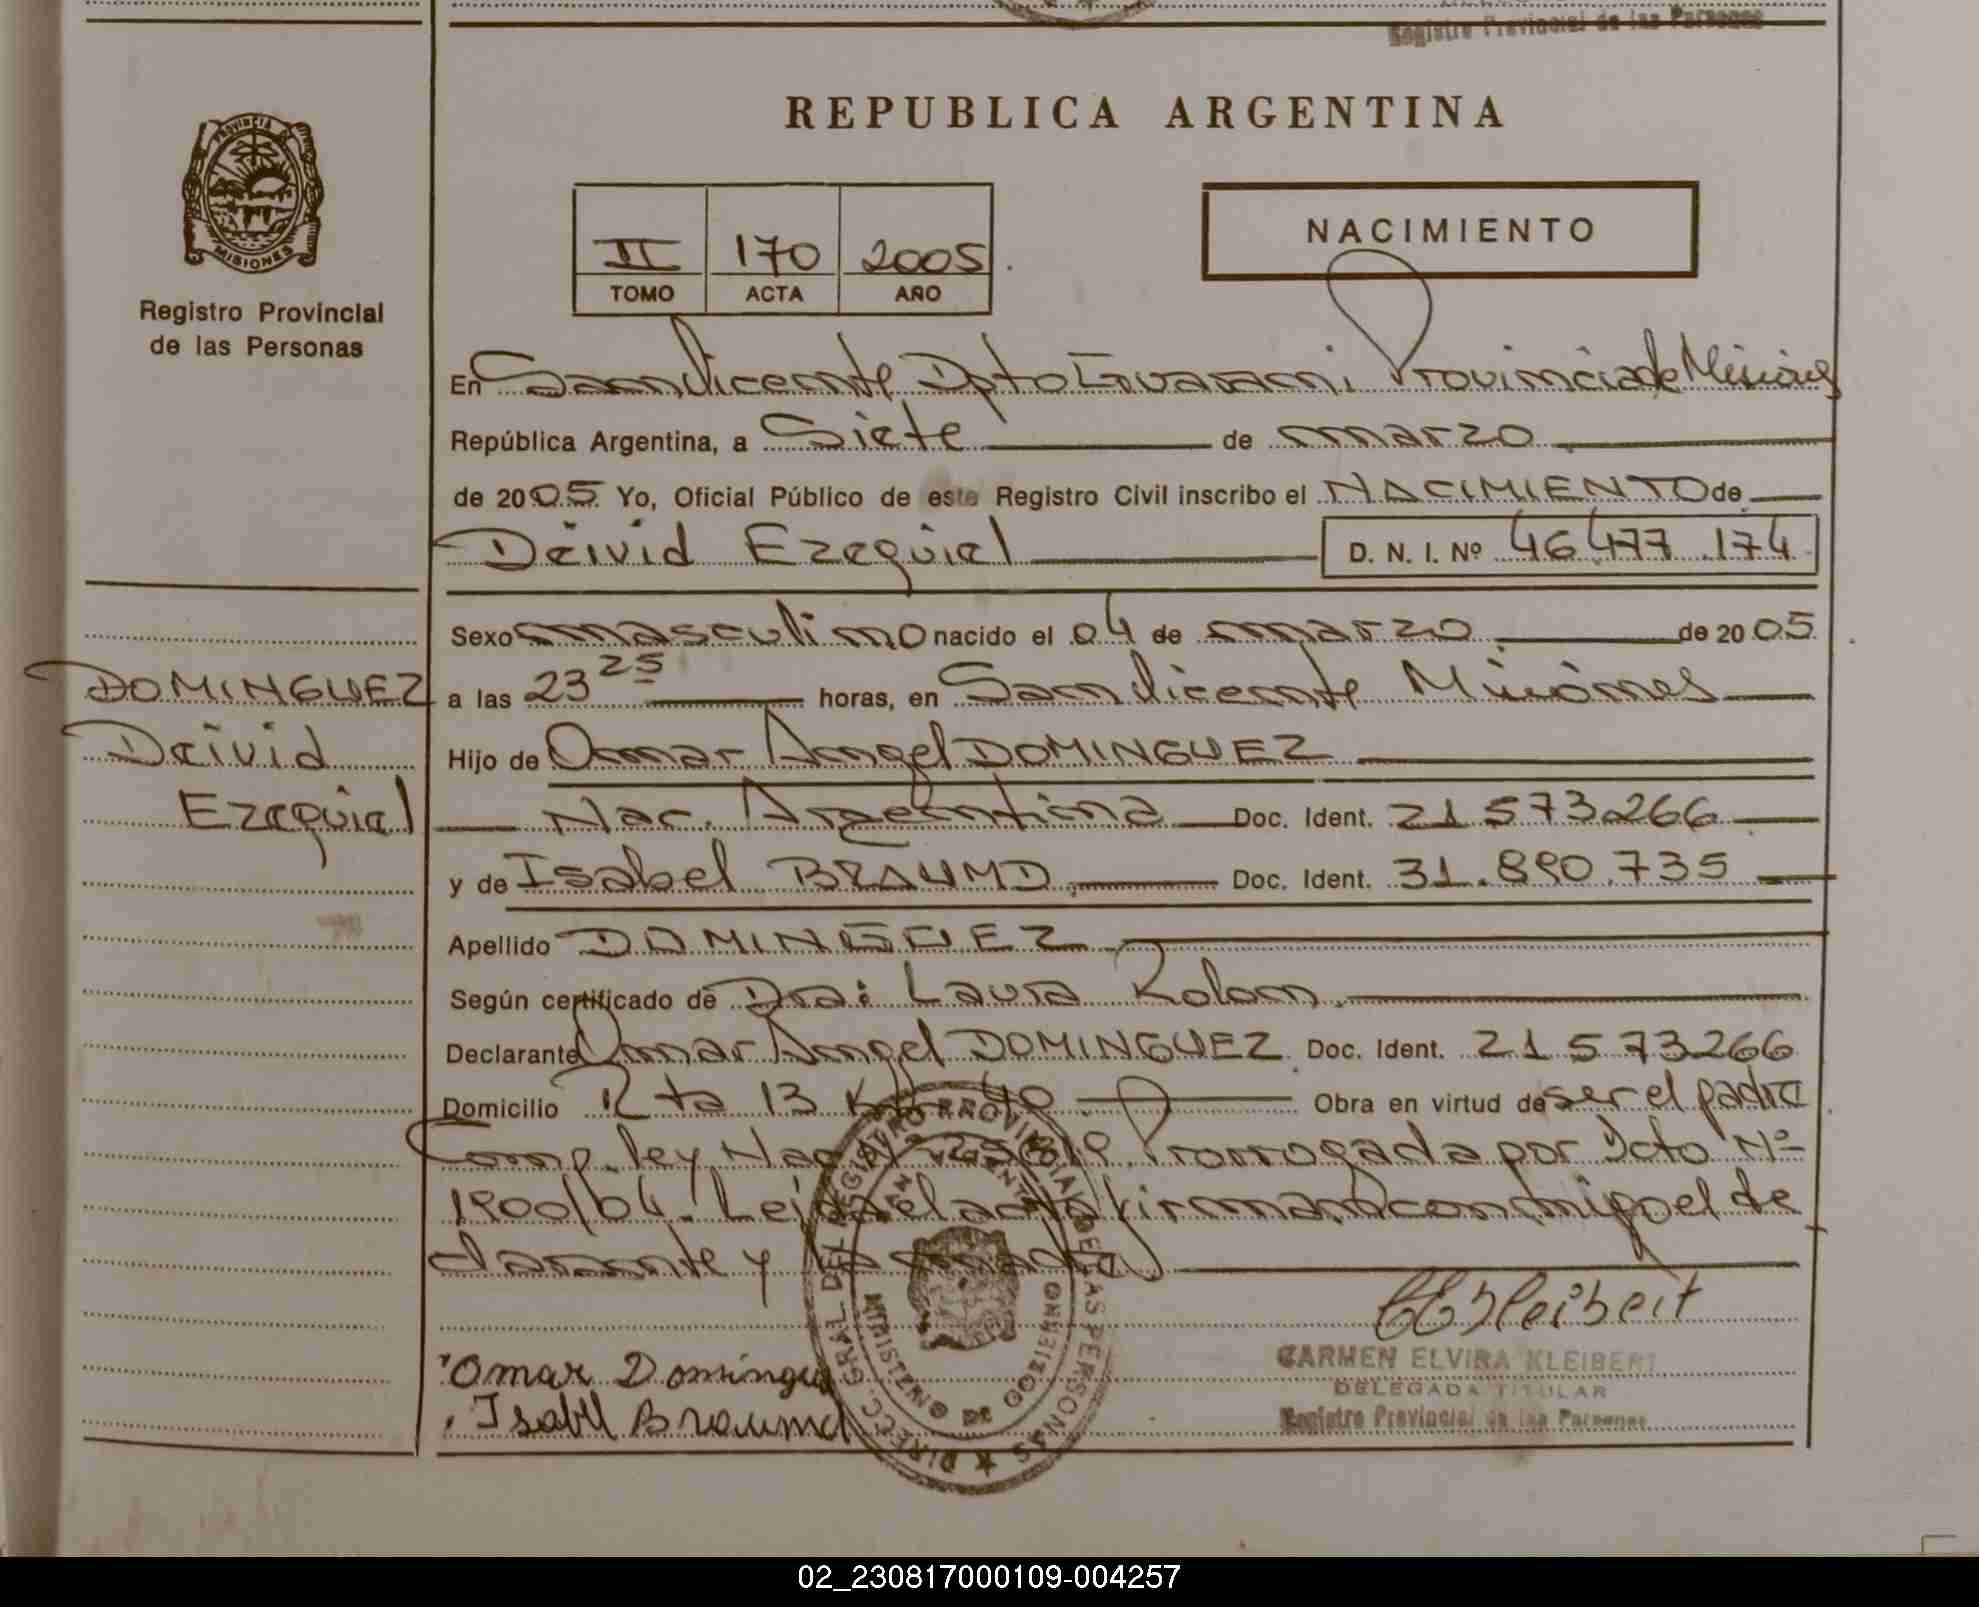 Registro Provincial de las Personas
REPUBLICA ARGENTINA
PROVINCIA DE
MISIONES
Registro Provincial
de las Personas
II 170 2005
TOMO ACTA AÑO
NACIMIENTO
En San Vicente Dpto Guarani Provincia de Misiones
República Argentina, a Siete de marzo
de 2005 Yo, Oficial Público de este Registro Civil inscribo el NACIMIENTO de
Deivid Ezequiel D. N. I. Nº 46.477.174
Sexo masculino nacido el 04 de marzo de 2005
DOMINGUEZ
Deivid
Ezequiel
a las 23 25 horas, en San Vicente Misiones
Hijo de Omar Angel DOMINGUEZ
Nac. Argentina Doc. Ident. 21 573266
y de Isabel BRAUND Doc. Ident. 31.890.735
Apellido DOMINGUEZ
Según certificado de Dra: Laura Rolon
Declarante Omar Angel DOMINGUEZ Doc. Ident. 21 573266
Domicilio Rta 13 Km 40 Obra en virtud de ser el padre
Comp. ley Nac Nº 25819 Prorrogada por Dcto Nº
1900/04. Leida el acta firman conmigo el de
clarante y la madre
DIRECC. GRAL DEL REGISTRO PROVINCIAL DE LAS PERSONAS
MINISTERIO DE GOBIERNO
SAN VICENTE
CEKleibert
CARMEN ELVIRA KLEIBERT
DELEGADA TITULAR
Registro Provincial de las Personas
Omar Dominguez
Isabel Braund
02_230817000109-004257